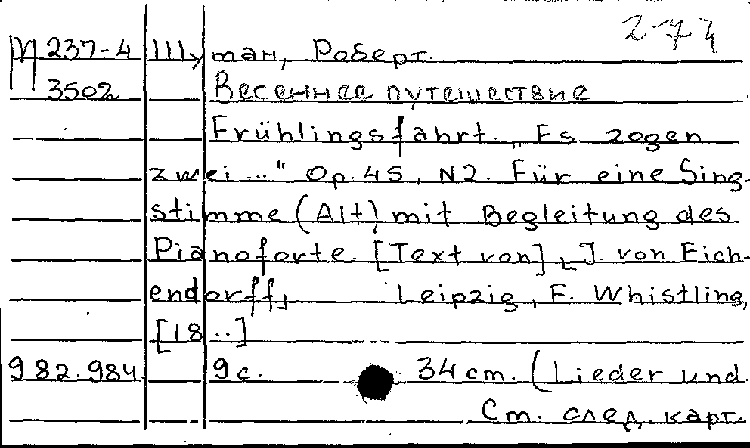 274
М 237-4 Шуман, Роберт.
3502 Весеннее путешествие
Frühlingsfahrt. „Es zogen
zwei ..." Op. 45, N2. Für eine Sing-
stimme (Alt) mit Begleitung des
Pianoforte [Text von] [J. von Eich-
endorff] Leipzig, F. Whistling,
[18 ..]
982.984 9 с. 34 cm. (Lieder und
См. след. карт.